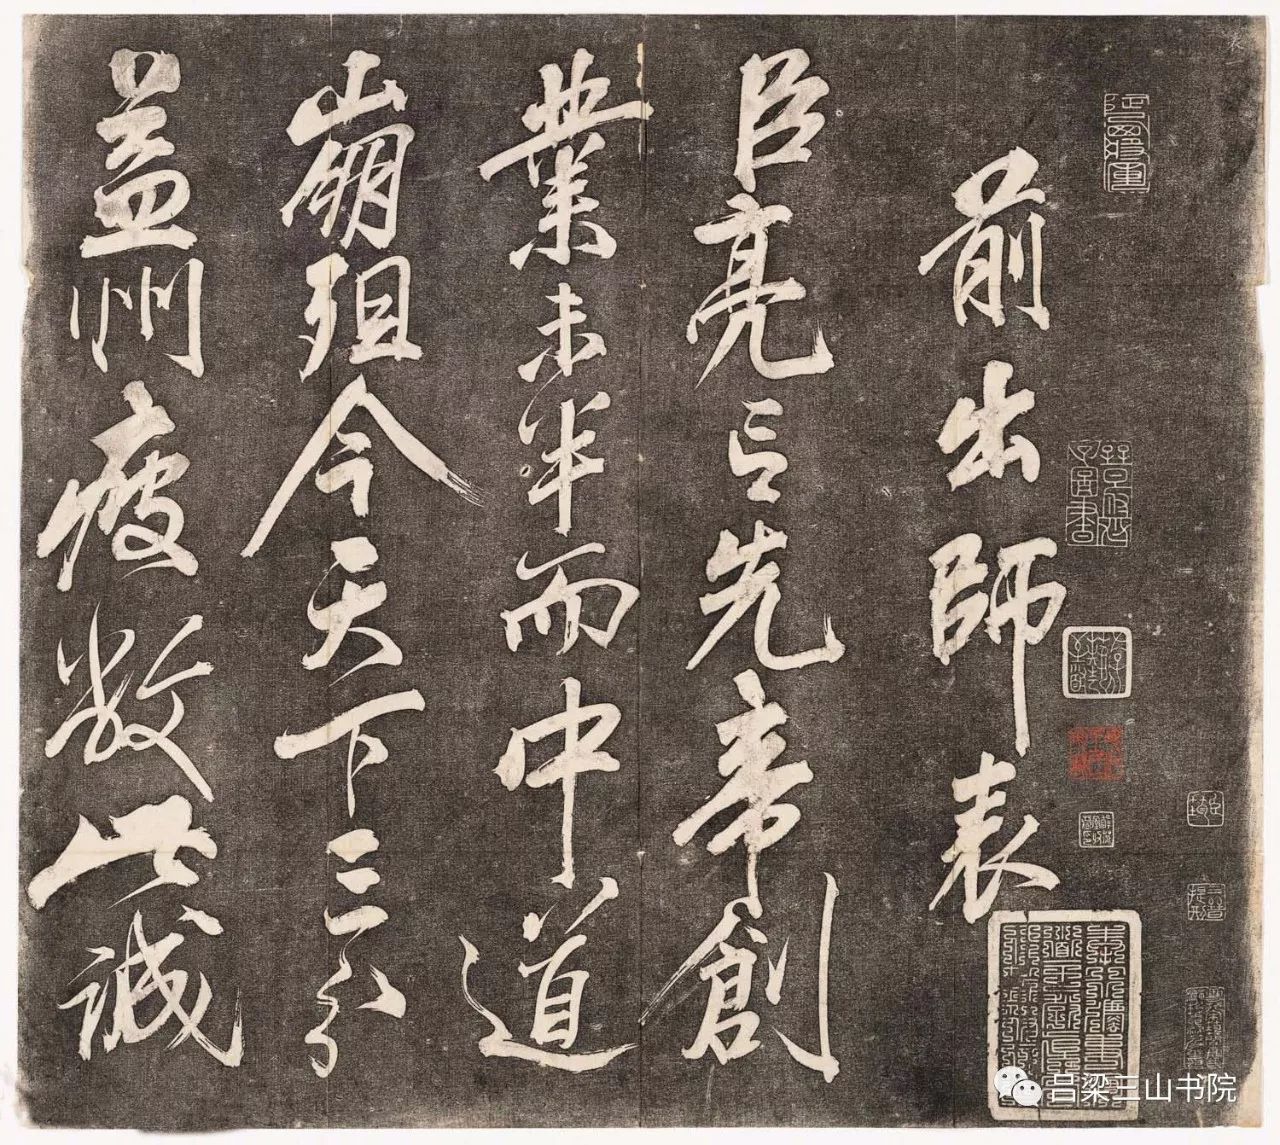 前出師表
臣亮言先帝創
業未半而中道
崩殂今天下三分
益州疲敝此誠
吕梁三山书院